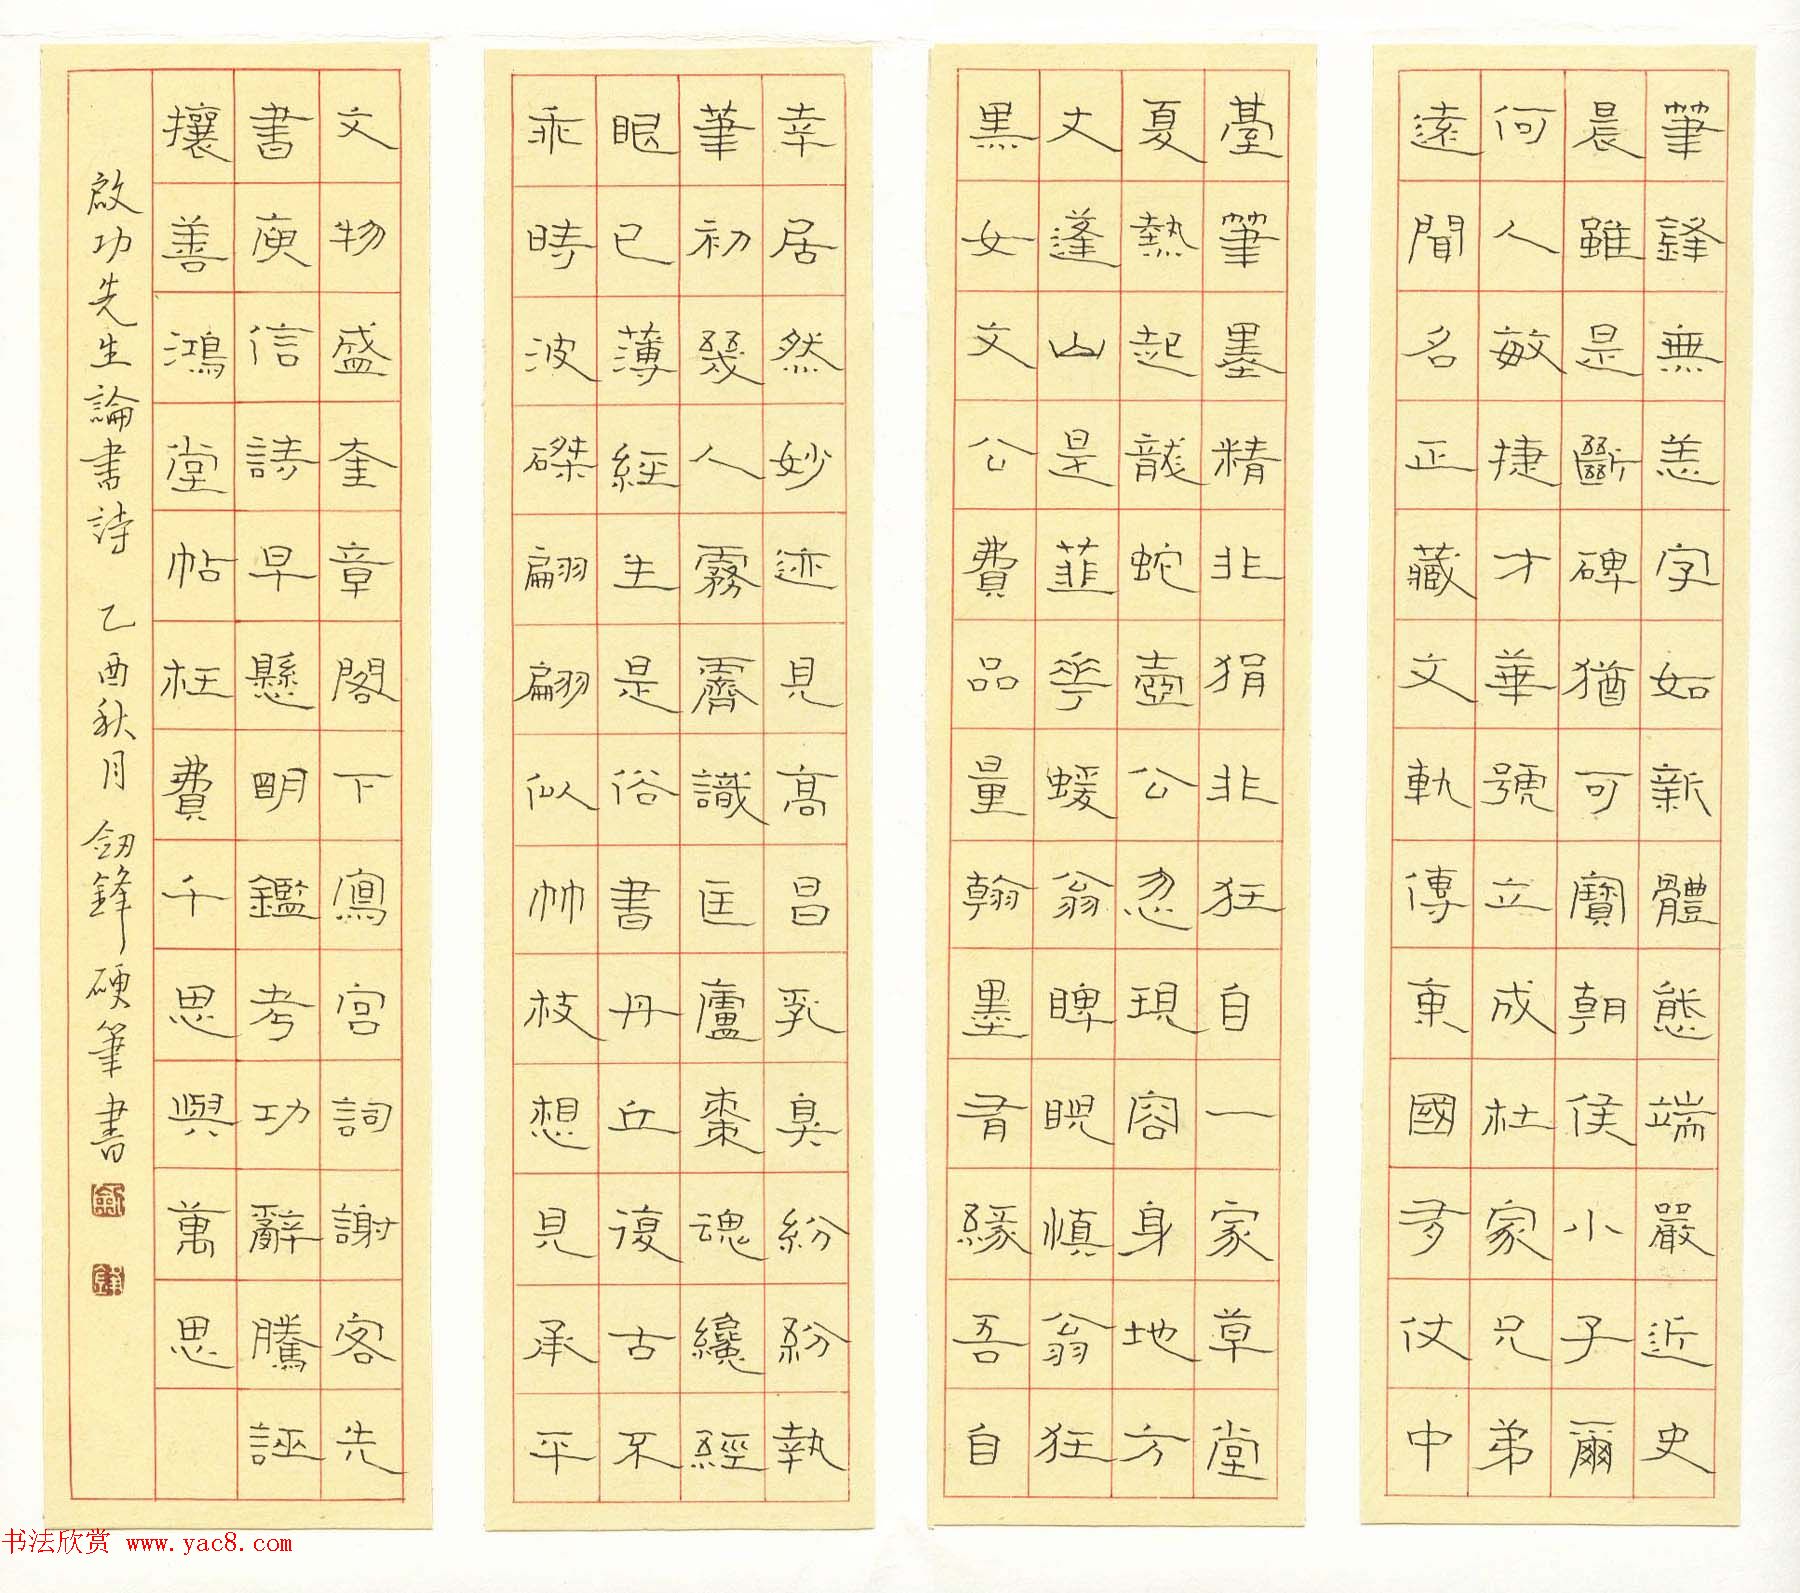 筆鋒無恙字如新體態端嚴近史
晨雖是斷碑猶可寶朝侯小子爾
何人敏捷才華號立成杜家兄弟
遠聞名正藏文軌傳東國多仗中
臺筆墨精非狷非狂自一家草堂
夏熱起龍蛇壺公忽現容身地方
丈蓬山是韭花蝯翁睥睨慎翁狂
黑女文公費品量翰墨有緣吾自
幸居然妙迹見高昌乳臭紛紛執
筆初幾人霧霽識匡廬棗魂纔經
眼已薄經生是俗書丹丘復古不
乖時波磔翩翩似竹枝想見承平
文物盛奎章閣下寫宮詞謝客先
書庾信詩早懸明鑑考功辭騰誣
攘善鴻堂帖枉費千思與萬思
啟功先生論書詩 乙酉秋月 劒鋒硬筆書
书法欣赏 www.yac8.com